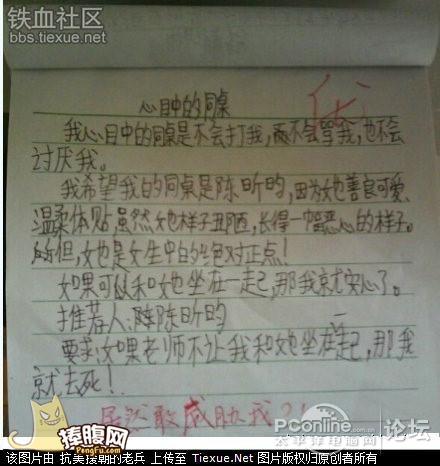 铁血社区
bbs.tiexue.net
心目中的同桌
我心目中的同桌是不会打我,而不会骂我,也不会
讨厌我。
我希望我的同桌是陈昕昀,因为她善良可爱、
温柔体贴,虽然她样子丑陋,长得一幅恶心的样子。
但,她是女生中的绝对正点!
如果可以和她坐在一起,那我就安心了。
推荐人:陈昕昀
要求:如果老师不让我和她坐在一起,那我
就去死!
居然敢威胁我?!
捧腹网
PengFu.com
PConline.com.cn 论坛
太平洋电脑网
该图片由 抗美援朝的老兵 上传至 Tiexue.Net 图片版权归原创者所有